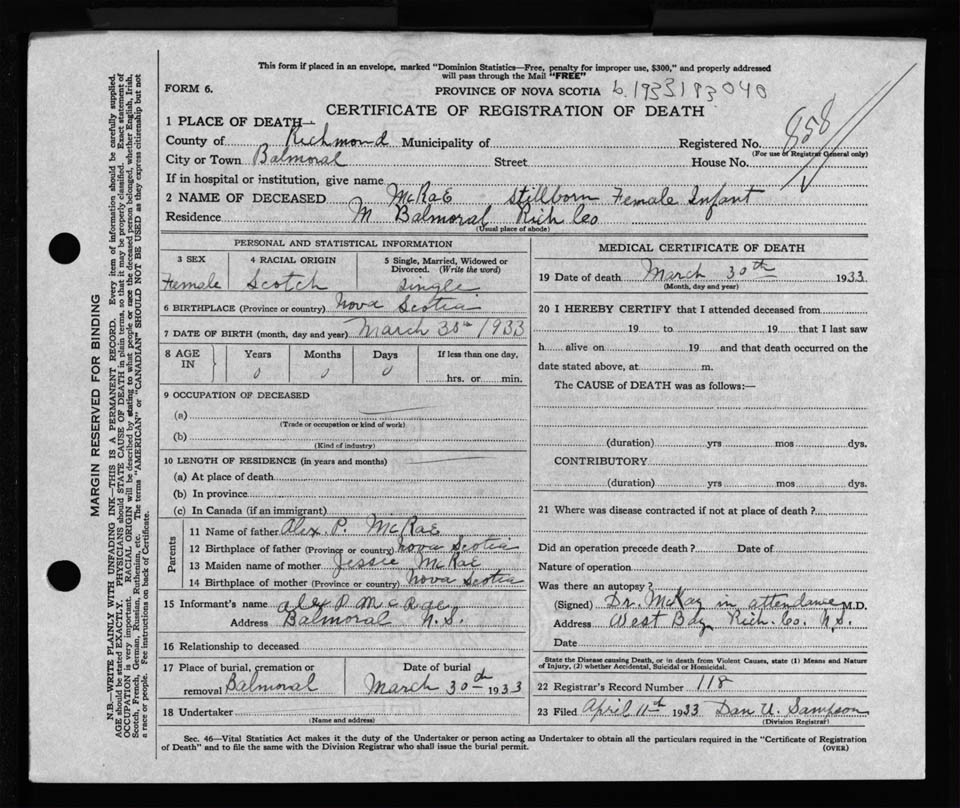 This form if placed in an envelope, marked "Dominion Statistics—Free, penalty for improper use, $300," and properly addressed
will pass through the Mail "FREE"
FORM 6.
PROVINCE OF NOVA SCOTIA
CERTIFICATE OF REGISTRATION OF DEATH
858
1 PLACE OF DEATH—
County of Richmond Municipality of Registered No.
(For use of Registrar General only)
City or Town Balmoral Street House No.
If in hospital or institution, give name
2 NAME OF DECEASED McRae Stillborn Female Infant
Residence M Balmoral Rich Co
(Usual place of abode)
PERSONAL AND STATISTICAL INFORMATION
3 SEX 4 RACIAL ORIGIN 5 Single, Married, Widowed or Divorced. (Write the word)
Female Scotch Single
6 BIRTHPLACE (Province or country) Nova Scotia
7 DATE OF BIRTH (month, day and year) March 30th 1933
8 AGE IN Years Months Days If less than one day,
0 0 0 hrs. or min.
9 OCCUPATION OF DECEASED
(a)
(Trade or occupation or kind of work)
(b)
(Kind of industry)
10 LENGTH OF RESIDENCE (in years and months)
(a) At place of death
(b) In province
(c) In Canada (if an immigrant)
Parents
11 Name of father Alex P. McRae
12 Birthplace of father (Province or country) Nova Scotia
13 Maiden name of mother Jessie McRae
14 Birthplace of mother (Province or country) Nova Scotia
15 Informant's name Alex P. McRae
Address Balmoral N.S.
16 Relationship to deceased
17 Place of burial, cremation or Date of burial
removal Balmoral March 30th 1933
18 Undertaker
(Name and address)
MEDICAL CERTIFICATE OF DEATH
19 Date of death March 30th 1933
(Month, day and year)
20 I HEREBY CERTIFY that I attended deceased from
19 to 19 that I last saw
h alive on 19 and that death occurred on the
date stated above, at m.
The CAUSE of DEATH was as follows:—
(duration) yrs mos dys.
CONTRIBUTORY
(duration) yrs mos dys.
21 Where was disease contracted if not at place of death?
Did an operation precede death? Date of
Nature of operation
Was there an autopsy?
(Signed) Dr. McKay in attendance M.D.
Address West Bay, Rich. Co. N.S.
Date
State the Disease causing Death, or in death from Violent Causes, state (1) Means and Nature
of Injury, (2) whether Accidental, Suicidal or Homicidal.
22 Registrar's Record Number 118
23 Filed April 11th 1933 Dan U. Sampson
(Division Registrar)
Sec. 46—Vital Statistics Act makes it the duty of the Undertaker or person acting as Undertaker to obtain all the particulars required in the "Certificate of Registration
of Death" and to file the same with the Division Registrar who shall issue the burial permit.
(OVER)
MARGIN RESERVED FOR BINDING
N.B.—WRITE PLAINLY WITH UNFADING INK—THIS IS A PERMANENT RECORD. Every item of information should be carefully supplied.
AGE should be stated EXACTLY. PHYSICIANS should STATE CAUSE OF DEATH in plain terms, so that it may be properly classified. Exact statement of
OCCUPATION is very important. RACIAL ORIGIN will be described by stating to what people or race the deceased person belonged, whether English, Irish,
Scotch, French, German, Russian, Ruthenian, etc. The terms "AMERICAN" or "CANADIAN" SHOULD NOT BE USED as they express citizenship but not
a race or people. Fee instructions on back of Certificate.